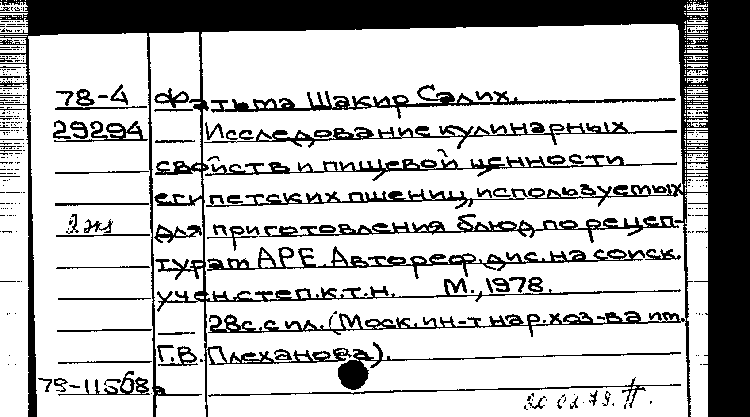 78-4 Фатьма Шакир Салих.
29294 Исследование кулинарных
свойств и пищевой ценности
египетских пшениц, используемых
2 экз для приготовления блюд по рецеп-
турам АРЕ. Автореф. дис. на соиск.
учен. степ. к.т.н. М., 1978.
28с. с ил. (Моск. ин-т нар. хоз-ва им.
Г.В. Плеханова).
79-11568а